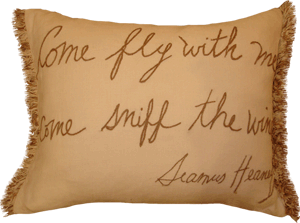 Come fly with me
come sniff the wind
Seamus Heaney